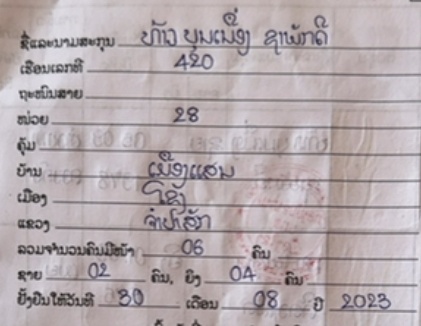 ຊື່ແລະນາມສະກຸນ ທ້າວ ບຸນເມື່ອງ ຊາພັກດີ
ເຮືອນເລກທີ 420
ຖະໜົນສາຍ
ໜ່ວຍ 28
ຄຸ້ມ
ບ້ານ ເມືອງແສນ
ເມືອງ ໂຂງ
ແຂວງ ຈຳປາສັກ
ລວມຈຳນວນຄົນມີໜ້າ 06 ຄົນ
ຊາຍ 02 ຄົນ, ຍິງ 04 ຄົນ
ຢັ້ງຢືນໃຫ້ວັນທີ 30 ເດືອນ 08 ປີ 2023